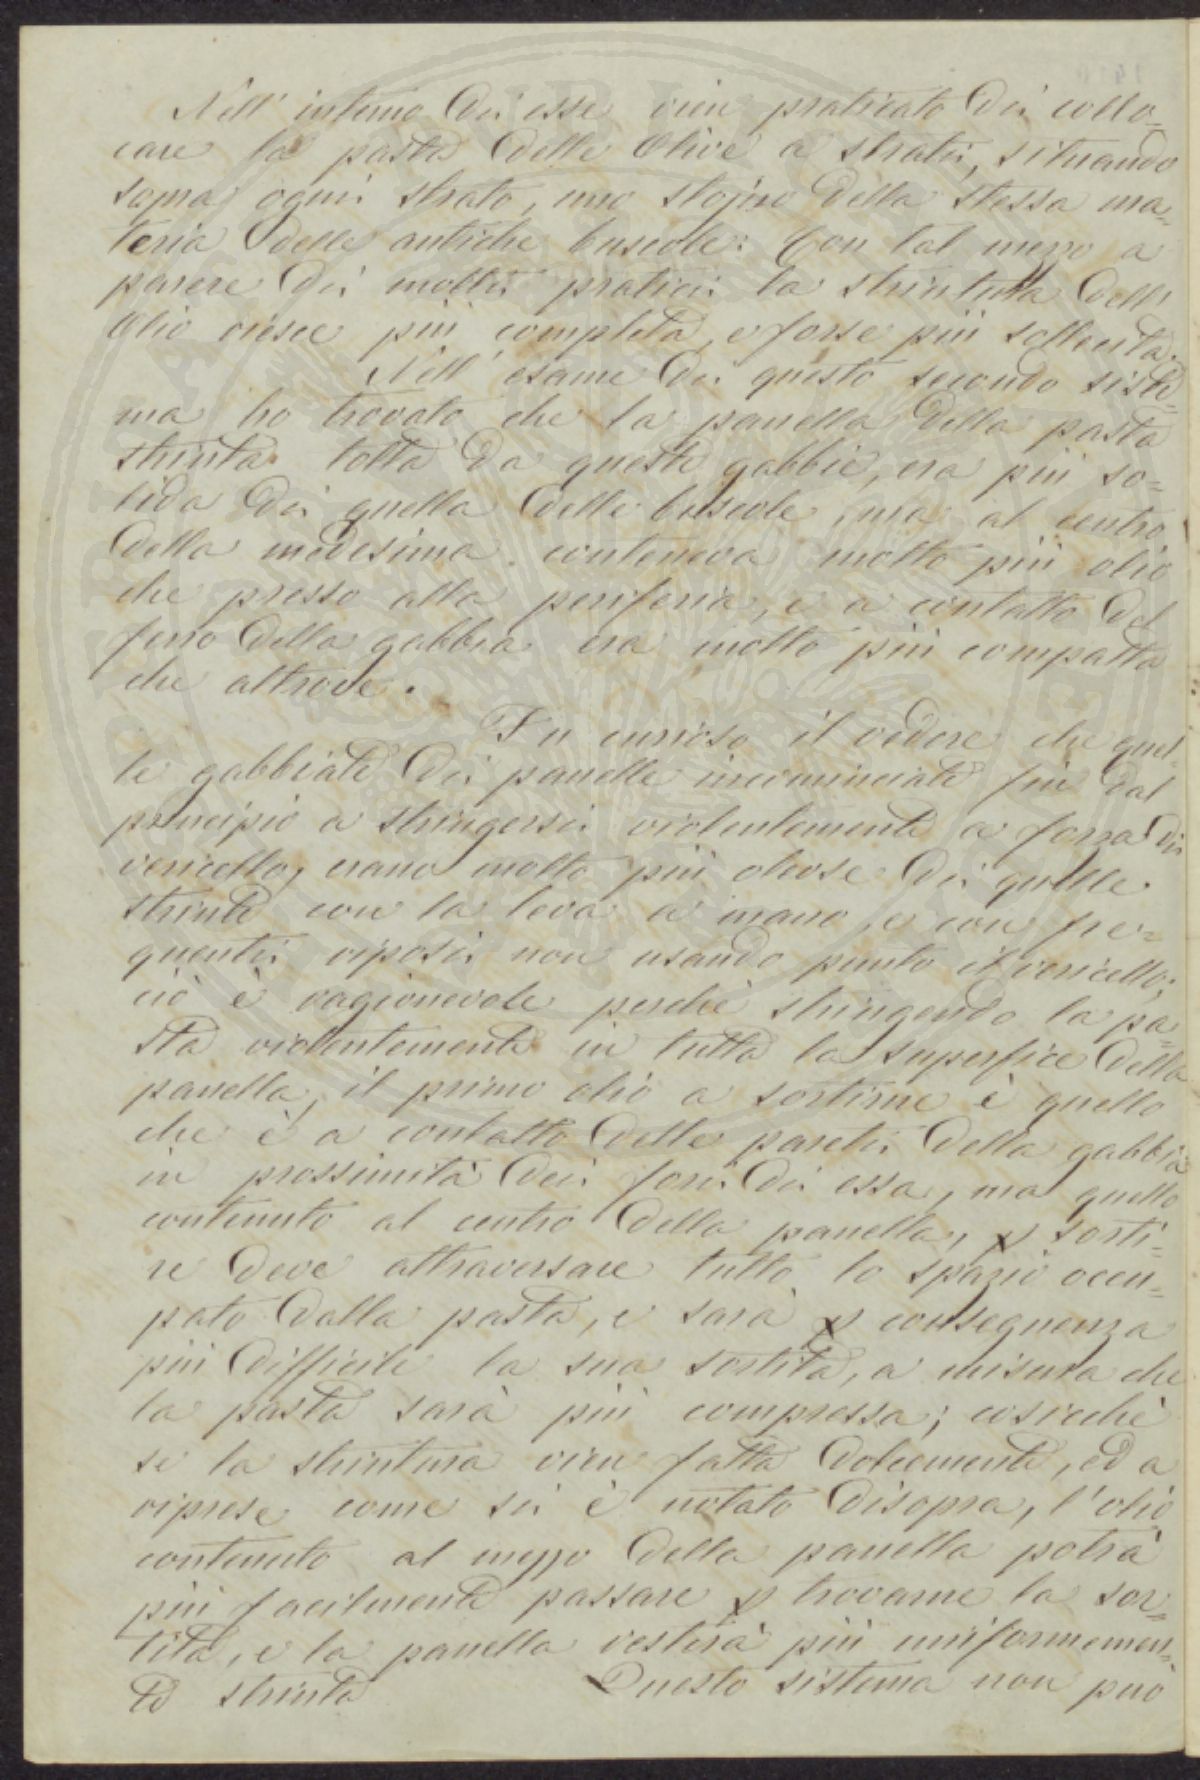 Nell' interno di esse vien praticato di collo=
care la pasta delle Olive a strati, situando
sopra ogni strato, uno stojno della stessa ma=
teria delle antiche buscole: Con tal mezzo a
parere di molti pratici la strintura dell'
Olio riesce più completa, e forse più sollecita.
Nell' esame di questo secondo siste=
ma ho trovato che la panella della pasta
strinta tolta da queste gabbie, era più so=
lida di quella delle buscole, ma al centro
della medesima conteneva molto più olio
che presso alla periferia, e a contatto del
ferro della gabbia era molto più compatta
che altrove.
Fu curioso il vedere che quel=
le gabbiate di panelle incominciate fin dal
principio a stringersi violentemente a forza di
vericello, erano molto più oleose di quelle
strinte con la leva a mano, e con fre=
quenti riposi non usando punto il vericello;
ciò è ragionevole perchè stringendo la pa=
sta violentemente in tutta la superfice della
panella, il primo olio a sortirne è quello
che è a contatto delle pareti della gabbia
in prossimità dei fori di essa, ma quello
contenuto al centro della panella, p sorti=
re deve attraversare tutto lo spazio occu=
pato dalla pasta, e sarà p conseguenza
più difficile la sua sortita, a misura che
la pasta sarà più compressa; cosicchè
se la strintura vien fatta dolcemente, ed a
riprese come si è notato disopra, l'olio
contenuto al mezzo della panella potrà
più facilmente passare p trovarne la sor=
tita, e la panella resterà più uniformemen=
te strinta Questo sistema non può